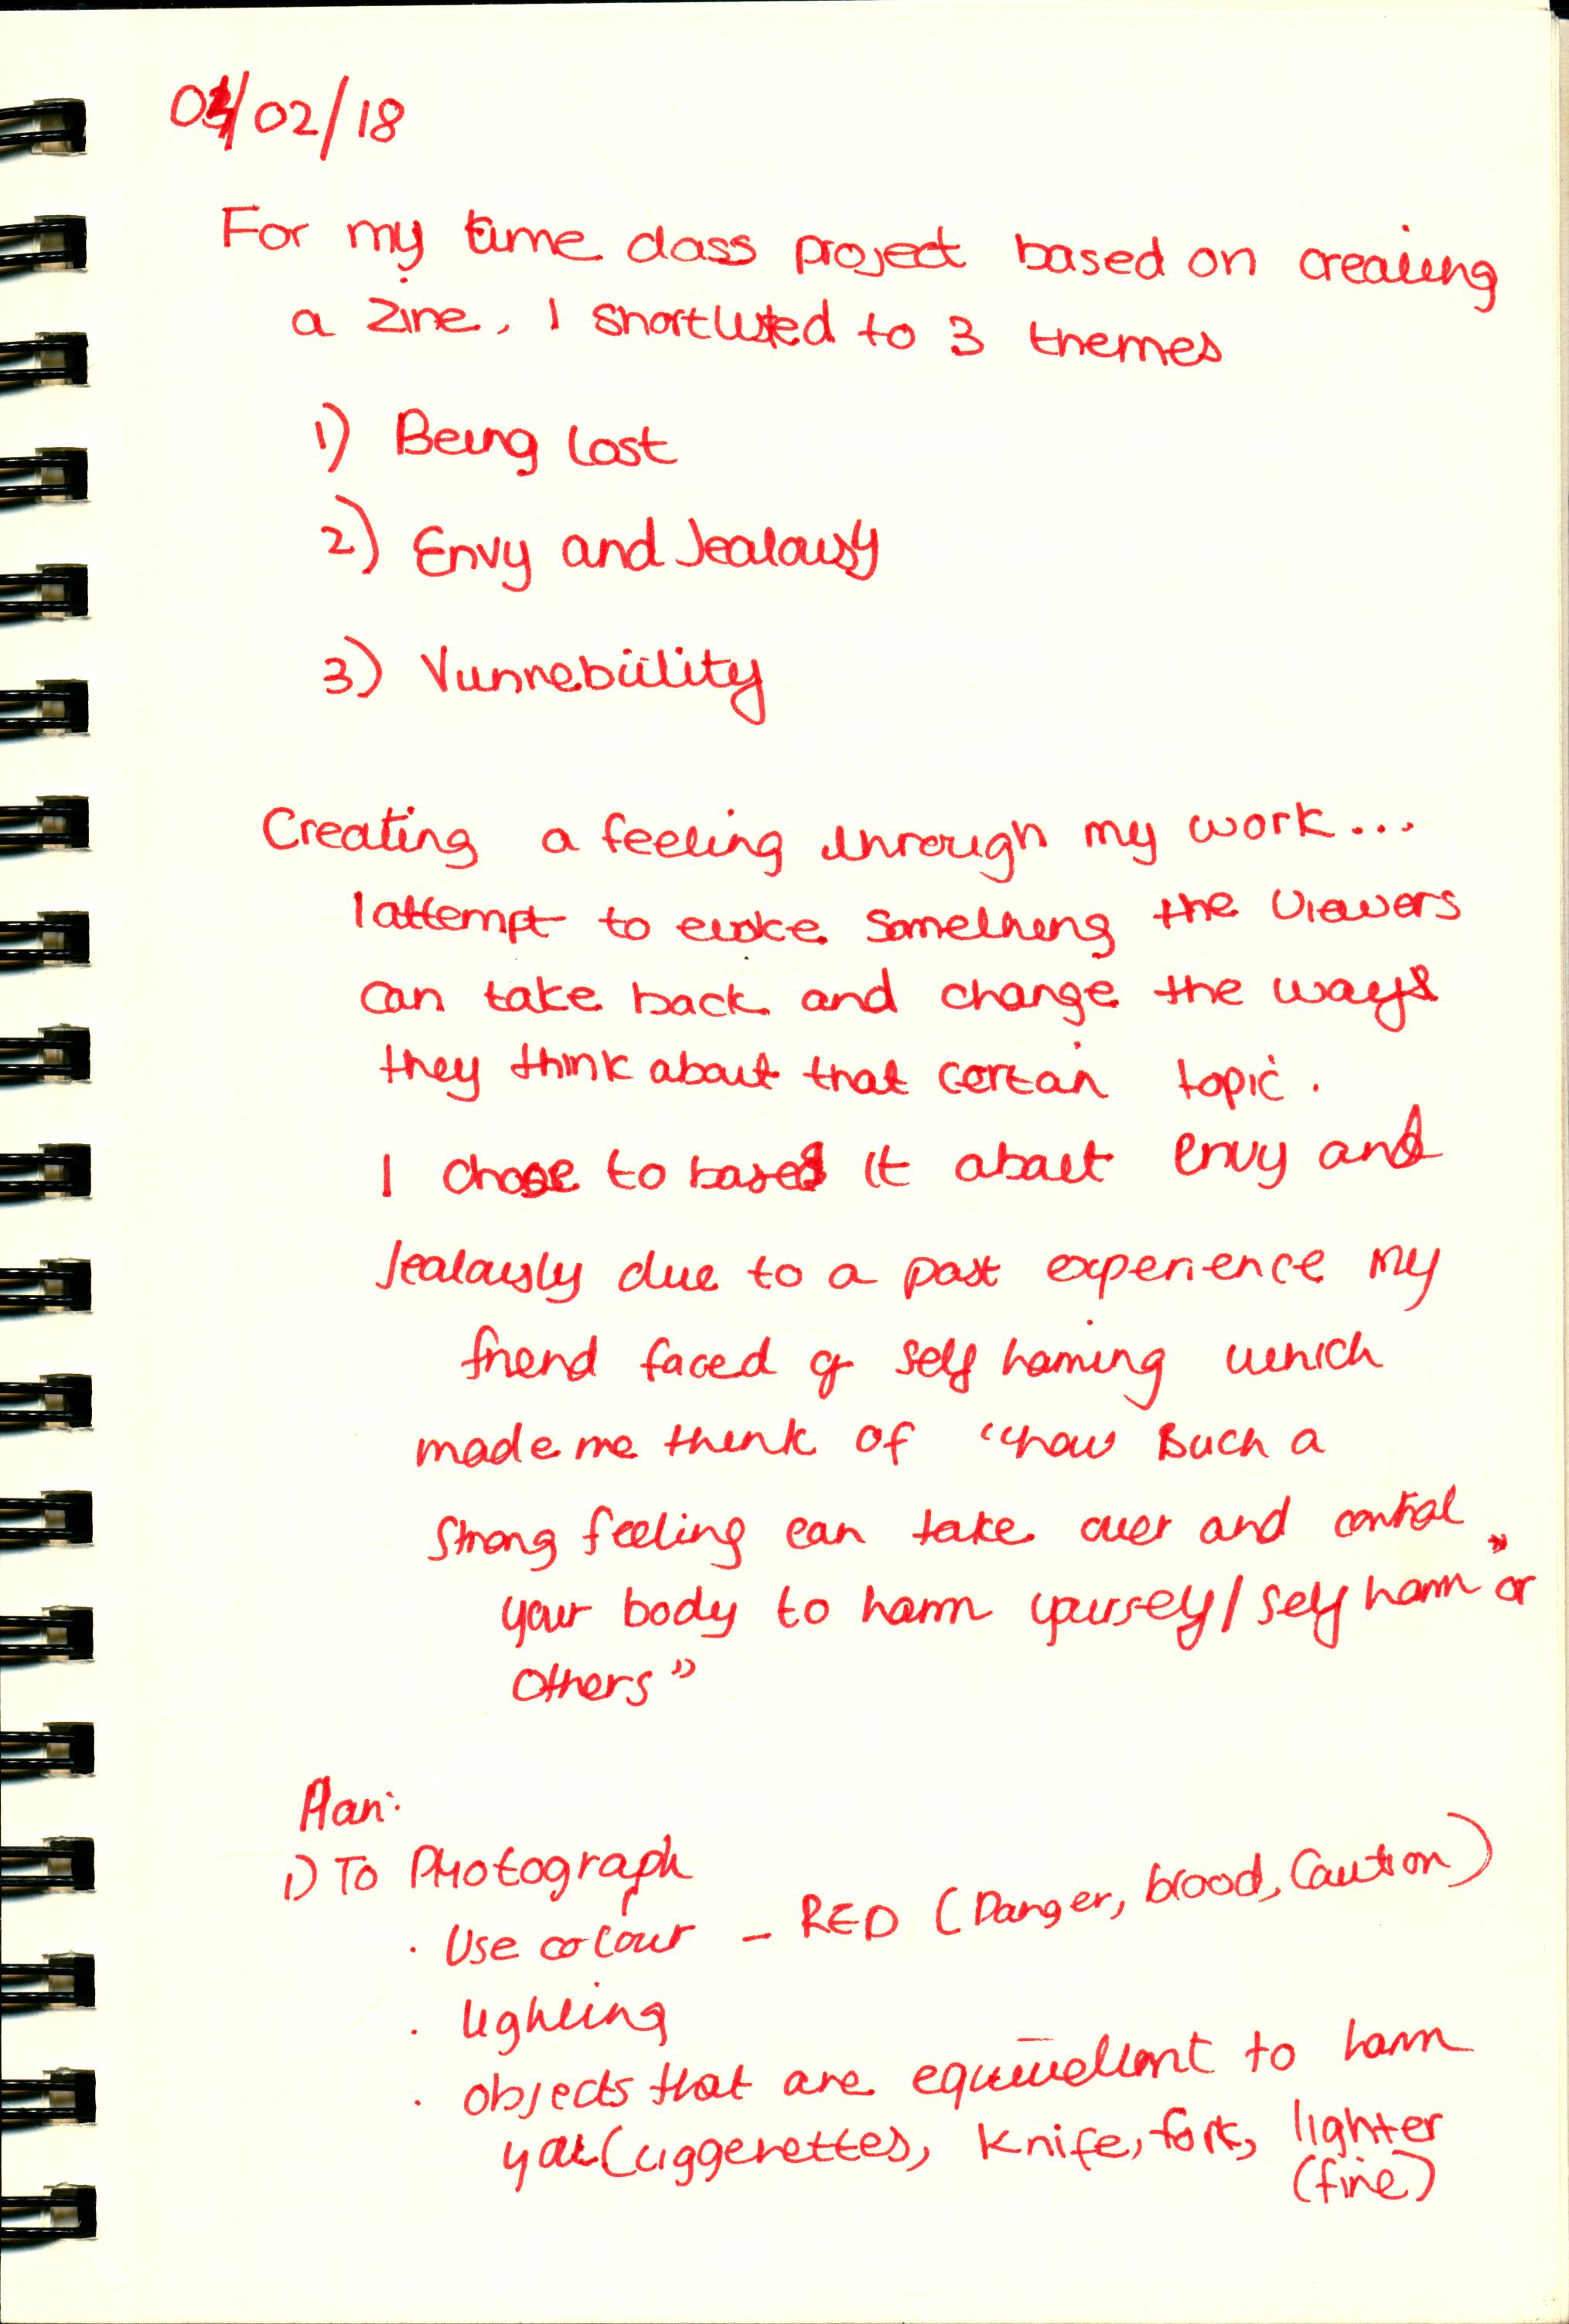 /02/18
For my time class project based on creating
a zine, I shortlisted to 3 themes
1) Being lost
2) Envy and Jealousy
3) Vunnebility
Creating a feeling through my work...
I attempt to evoke something the viewers
can take back and change the ways
they think about that certain topic.
I choose to based it about envy and
Jealously due to a past experience my
friend faced of self haming which
made me think of "how Such a
strong feeling can take over and control
your body to harm yourself/self harm" or
others"
Plan:
1) To PHotograph
· Use colour - RED (Danger, blood, Caution)
· lighting
· objects that are equivellant to harm
you (ciggerettes, knife, fork, lighter
(fire)